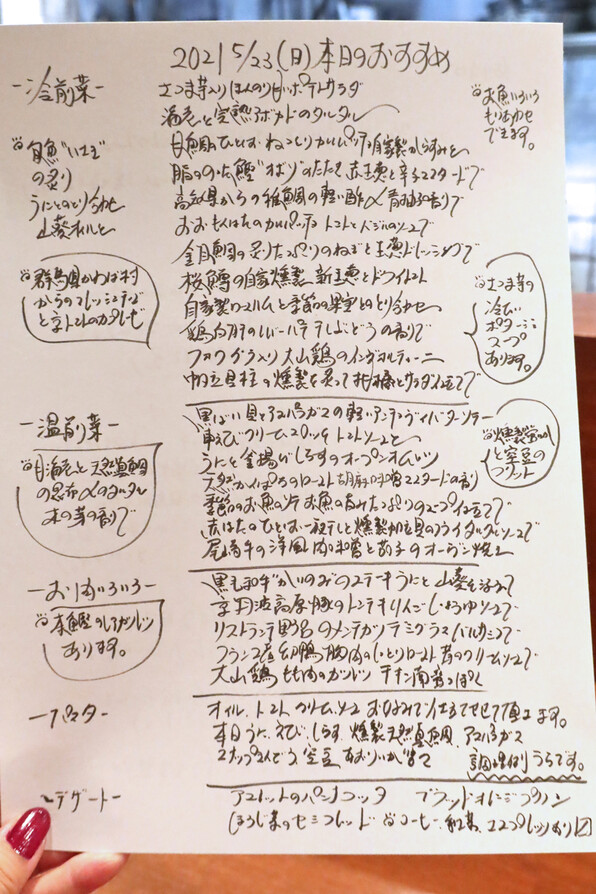 2021 5/23(日)本日のおすすめ
-冷前菜-
さつま芋入り ほんのり甘い ポテトサラダ
海老と完熟アボカドのタルタル
お魚いろいろ
もりあわせ
できます。
旬魚"いさき"
の炙り
うにとのとり合わせ
山葵オイルと
甘鯛のひと干し ねっとりカルパッチョ 自家製からすみと
脂ののった鰹 のたたき 赤玉葱と辛子マスタードで
高知県からの稚鯛の軽い酢〆 青柚子の香りで
おおもんはたのカルパッチョ トマトとバジルのソースで
金目鯛の炙り たっぷりのねぎと玉葱ドレッシングで
桜鱒の自家燻製 新玉葱とドライトマト
自家製ロースハムと季節の果実とのとり合わせ
鶏白肝のレバーパテ ぶどうの香りで
フォワグラ入り 大山鶏のインボルティーニ
帆立貝柱の燻製を炙って 柑橘とサラダ仕立で
群馬県かわば村
からのフレッシュチーズ
とトマトのカプレーゼ
さつま芋の
冷たい
ポタージュ
スープ
あります。
-温前菜-
黒ばい貝とアスパラガスの軽いアンチョヴィバターソテー
甘えびクリームコロッケ トマトソースと
うにと釜揚げしらすのオープンオムレツ
天然かんぱちのロースト 胡麻味噌マスタードの香り
季節のお魚の お魚の旨みたっぷりのスープ仕立で
赤はたのひと干し 一夜干しと燻製帆立貝のフライ タルタルソースで
尾崎牛の洋風肉味噌と茄子のオーブン焼き
甘海老と天然真鯛
の昆布〆のタルタル
木の芽の香りで
燻製
と空豆の
フリット
-お肉いろいろ-
黒毛和牛かいのみのステーキ うにと山葵をそえて
京丹波高原豚のトンテキ りんごしょうゆソースで
リストランテ野呂のメンチカツ デミグラスバルサミコで
フランス産幼鴨胸肉のしっとりロースト 茸のクリームソースで
大山鶏もも肉のカツレツ チキン南蛮っぽく
本鰹のレアカツレツ
あります。
-パスタ-
オイル、トマト、クリームソース お好みで仕立てさせて頂きます。
本日 うに、えび、しらす、燻製天然真鯛、アスパラガス
スナップえんどう 空豆 あおりいか 皆で
調理例 うらです。
-デザート-
アマレットのパンナコッタ ブラッドオレンジプリン
ほうじ茶のセミフレッド コーヒー、紅茶、エスプレッソあり〼